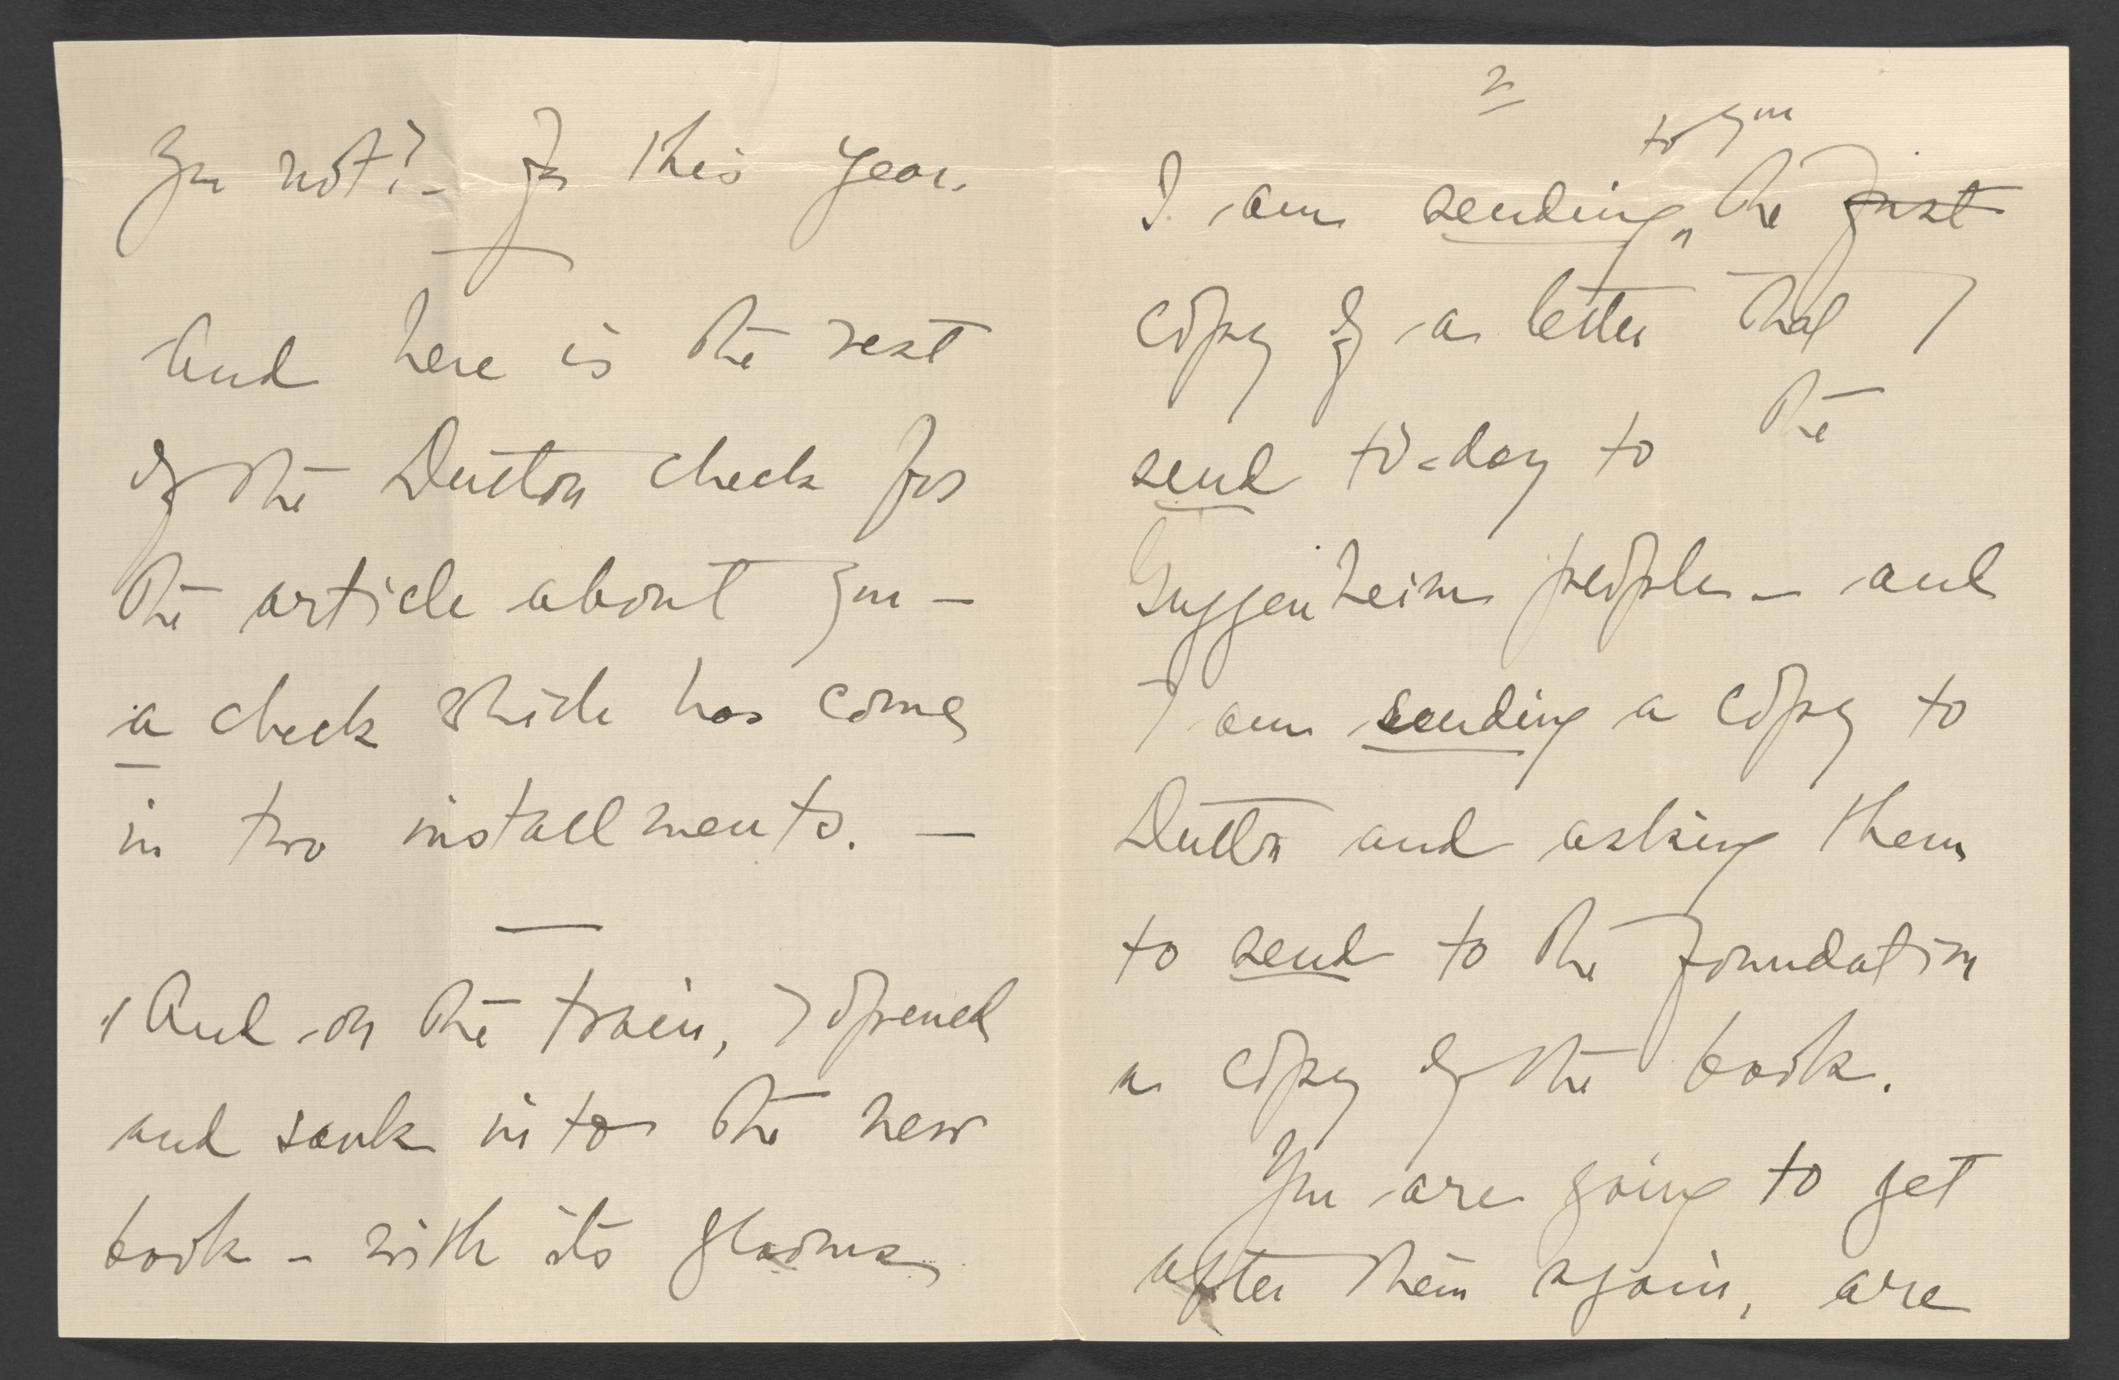 you not? – for this year.
And here is the rest
of the Dutton check for
the article about you –
a check which has come
in two installments. –
And on the train, I opened
and sank into the new
book – with its glooms
2
to you
I am sending the first
copy of a letter that I
send to-day to the
Guggenheim people – and
I am sending a copy to
Dutton and asking them
to send to the foundation
a copy of the book.
You are going to get
after them again, are